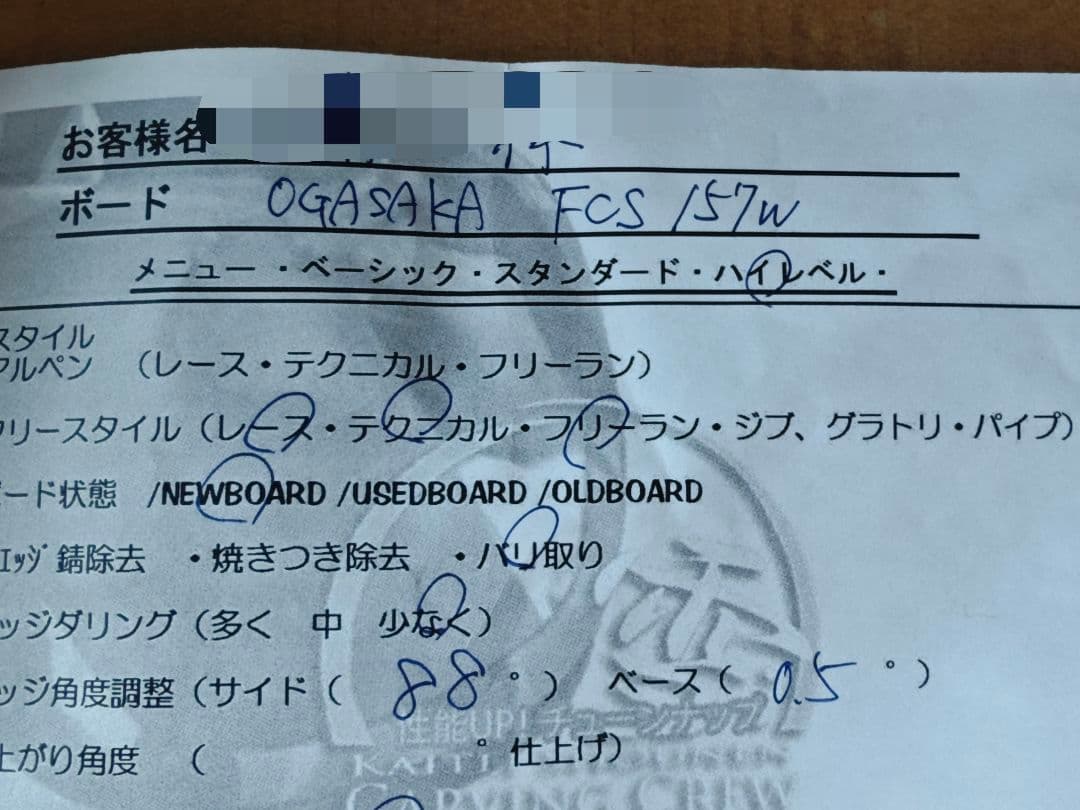 お客様名
ボード OGASAKA FCS 157W
メニュー ・ベーシック・スタンダード・ハイレベル・
スタイル
アルペン （レース・テクニカル・フリーラン）
フリースタイル（レース・テクニカル・フリーラン・ジブ、グラトリ・パイプ）
ード状態 /NEWBOARD /USEDBOARD /OLDBOARD
ｴｯｼﾞ錆除去 ・焼きつき除去 ・バリ取り
ッジダリング（多く 中 少なく）
ッジ角度調整（サイド（ 88 °） ベース（ 0.5 °）
性能UP! チューンナップ
上がり角度 （ ° 仕上げ）
CARVING CREW